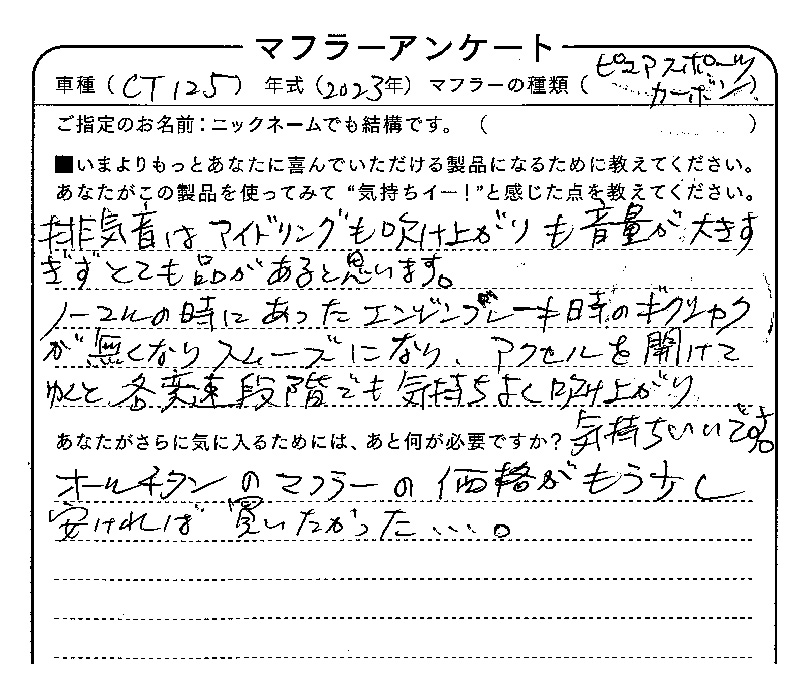 マフラーアンケート
車種（CT125） 年式（2023年） マフラーの種類（ピュアスポーツカーボン）
ご指定のお名前：ニックネームでも結構です。（　　　）
■いまよりもっとあなたに喜んでいただける製品になるために教えてください。
あなたがこの製品を使ってみて“気持ちイー！”と感じた点を教えてください。
排気音はアイドリングも吹け上がりも音量が大きす
ぎずとても品があると思います。
ノーマルの時にあったエンジンブレーキ時のギクシャク
が無くなりスムーズになり、アクセルを開けて
ゆくと各変速段階でも気持ちよく吹け上がり
気持ちいいです。
あなたがさらに気に入るためには、あと何が必要ですか？
オールチタンのマフラーの価格がもう少し
安ければ買いたかった…。